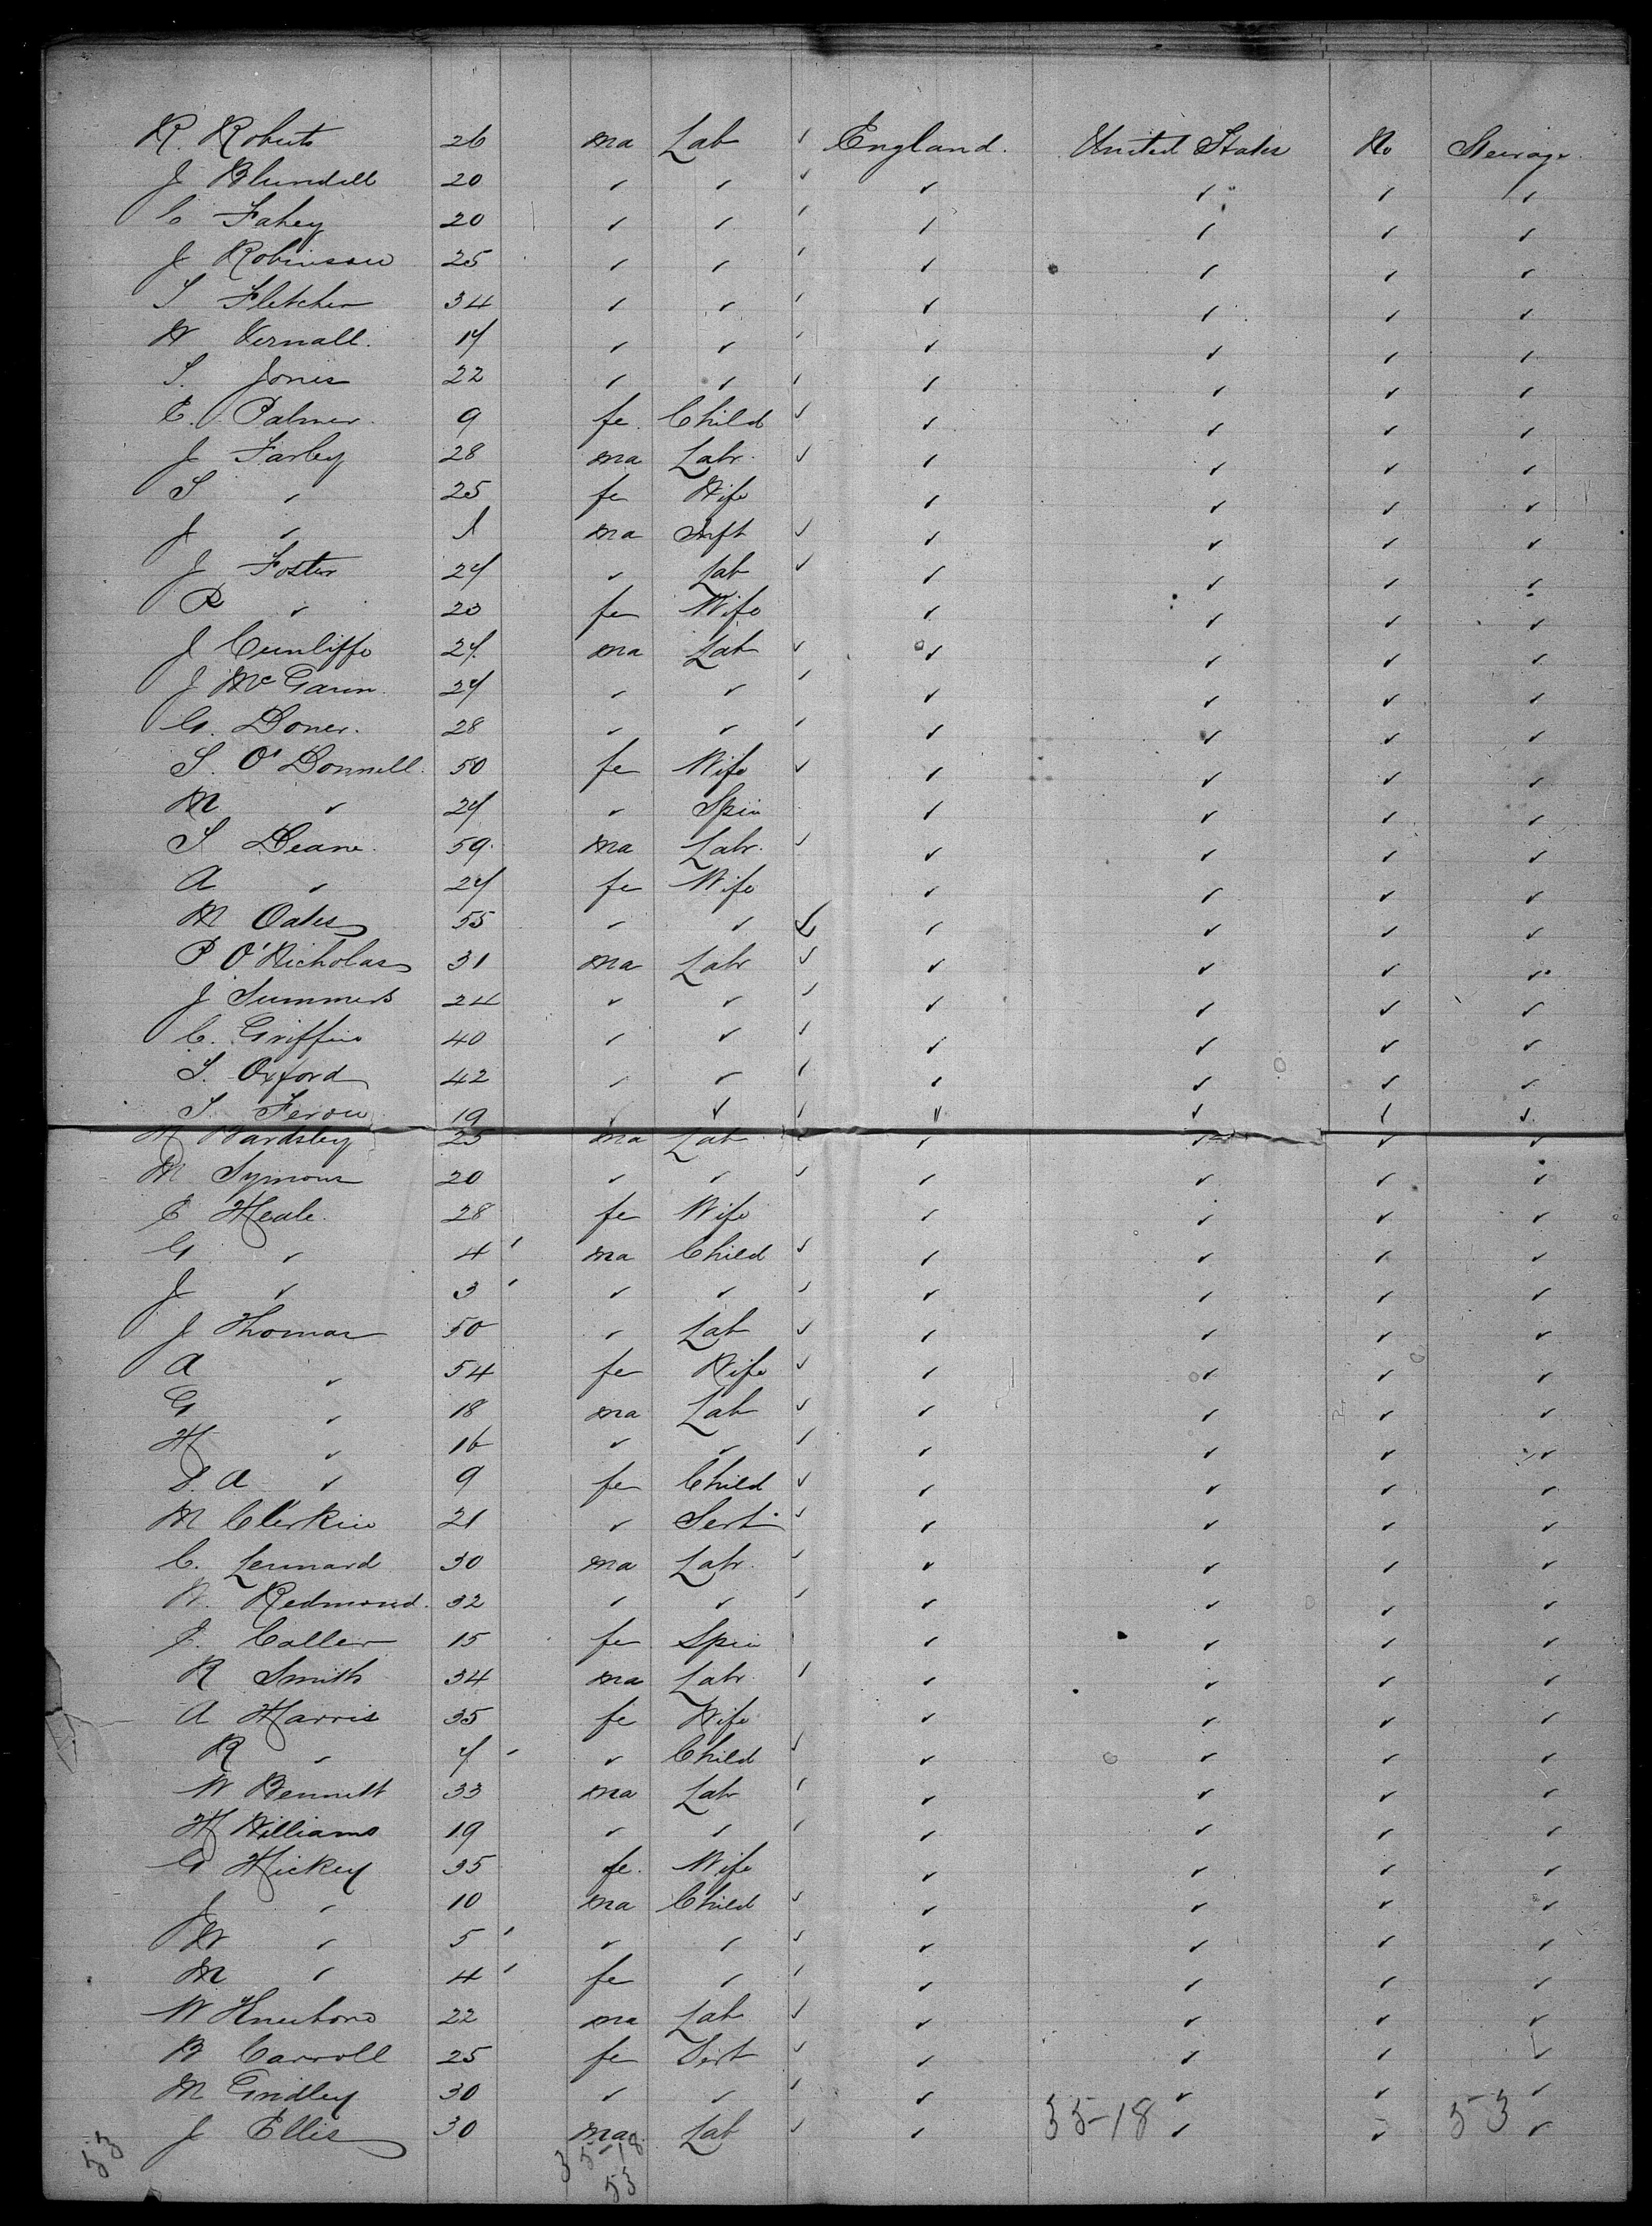 R. Roberts 26 ma Lab ✓ England. United States No Steerage.
J Blundell 20 ✓ ✓ ✓ ✓ ✓ ✓ ✓
C Fahey 20 ✓ ✓ ✓ ✓ ✓ ✓ ✓
J Robinson 25 ✓ ✓ ✓ ✓ ✓ ✓ ✓
S Fletcher 34 ✓ ✓ ✓ ✓ ✓ ✓ ✓
W Vernall. 17 ✓ ✓ ✓ ✓ ✓ ✓ ✓
S. Jones 22 ✓ ✓ ✓ ✓ ✓ ✓ ✓
E. Palmer 9 fe. Child ✓ ✓ ✓ ✓ ✓
J Farley 28 ma Labr. ✓ ✓ ✓ ✓ ✓
S ✓ 25 fe Wife ✓ ✓ ✓ ✓
J ✓ 1 ma Inft ✓ ✓ ✓ ✓ ✓
J Foster 27 ✓ Lab ✓ ✓ ✓ ✓ ✓
R ✓ 23 fe Wife ✓ ✓ ✓ ✓
J Cunliffe 27. ma Lab ✓ ✓ ✓ ✓ ✓
J McGaun 27 ✓ ✓ ✓ ✓ ✓ ✓ ✓
G. Doner. 28 ✓ ✓ ✓ ✓ ✓ ✓ ✓
S. O'Donnell. 50 fe Wife ✓ ✓ ✓ ✓ ✓
M ✓ 27 ✓ Spin ✓ ✓ ✓ ✓
S Deane. 59. ma Labr. ✓ ✓ ✓ ✓ ✓
A ✓ 27 fe Wife ✓ ✓ ✓ ✓
M Oates 55 ✓ ✓ ✓ ✓ ✓ ✓ ✓
P O'Nicholas 31 ma Labr ✓ ✓ ✓ ✓ ✓
J Summers 24 ✓ ✓ ✓ ✓ ✓ ✓ ✓
C. Griffin 40 ✓ ✓ ✓ ✓ ✓ ✓ ✓
S. Oxford 42 ✓ ✓ ✓ ✓ ✓ ✓ ✓
S. Feron 19 ✓ ✓ ✓ ✓ ✓ ✓ ✓
M Bardsley 25 ma Lab ✓ ✓ ✓ ✓ ✓
M Symour 20 ✓ ✓ ✓ ✓ ✓ ✓ ✓
E Heale. 28 fe Wife ✓ ✓ ✓ ✓
G ✓ 4 ma Child ✓ ✓ ✓ ✓ ✓
J ✓ 3 ✓ ✓ ✓ ✓ ✓ ✓ ✓
J Thomas 50 ✓ Lab ✓ ✓ ✓ ✓ ✓
A ✓ 54 fe Wife ✓ ✓ ✓ ✓ ✓
G ✓ 18 ma Lab ✓ ✓ ✓ ✓ ✓
H ✓ 16 ✓ ✓ ✓ ✓ ✓ ✓ ✓
S. A ✓ 9 fe Child ✓ ✓ ✓ ✓ ✓
M Clerkin 21 ✓ Sert. ✓ ✓ ✓ ✓ ✓
C. Lennard 30 ma Labr. ✓ ✓ ✓ ✓ ✓
W. Redmond. 32 ✓ ✓ ✓ ✓ ✓ ✓ ✓
E. Caller 15 fe Spin ✓ ✓ ✓ ✓
R Smith 34 ma Labr. ✓ ✓ ✓ ✓ ✓
A Harris 35 fe Wife ✓ ✓ ✓ ✓
R ✓ 7 ✓ Child ✓ ✓ ✓ ✓ ✓
W Bennett 33 ma Lab ✓ ✓ ✓ ✓ ✓
H Williams 19 ✓ ✓ ✓ ✓ ✓ ✓ ✓
G Hickey 35 fe. Wife ✓ ✓ ✓ ✓
J ✓ 10 ma Child ✓ ✓ ✓ ✓ ✓
W ✓ 5 ✓ ✓ ✓ ✓ ✓ ✓ ✓
M ✓ 4 fe ✓ ✓ ✓ ✓ ✓ ✓
W Knubone 22 ma Lab ✓ ✓ ✓ ✓ ✓
B Carroll 25 fe Sert ✓ ✓ ✓ ✓ ✓
M Gridley 30 ✓ ✓ ✓ ✓ ✓ ✓ ✓
J Ellis 30 ma. Lab ✓ ✓ 35-18 ✓ ✓ 53 ✓
53 35-18
53